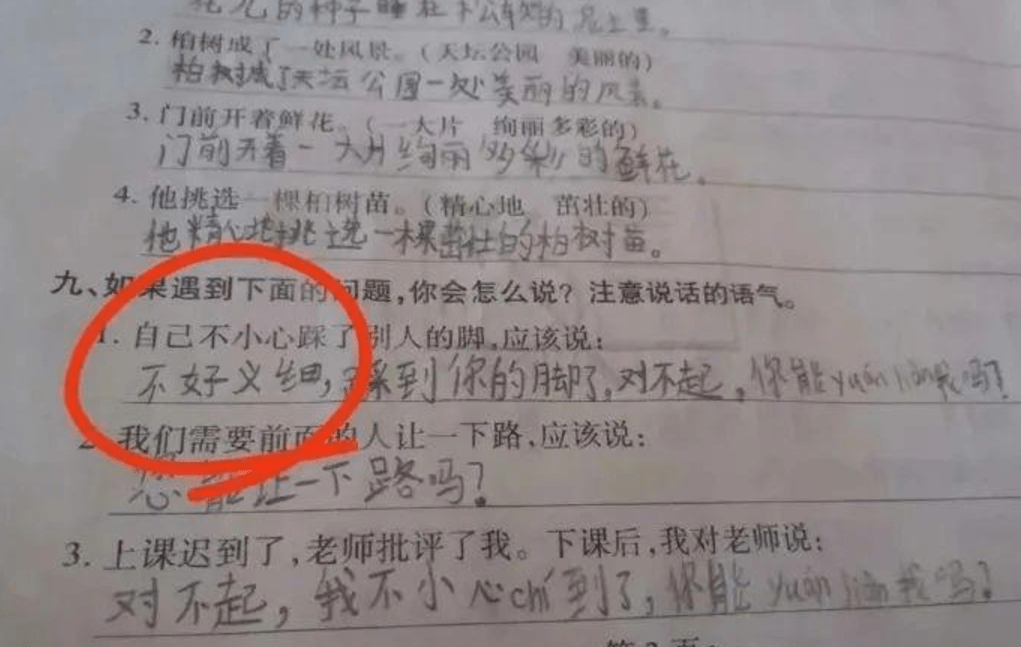 花儿的种子睡在松软的泥土里。
2. 柏树成了一处风景。(天坛公园 美丽的)
柏树城了天坛公园一处美丽的风景。
3. 门前开着鲜花。(一大片 绚丽多彩的)
门前开着一大片绚丽多彩的鲜花。
4. 他挑选一棵柏树苗。(精心地 茁壮的)
他精心地挑选一棵茁壮的柏树苗。
九、如果遇到下面的问题,你会怎么说?注意说话的语气。
1. 自己不小心踩了别人的脚,应该说:
不好义细,踩到你的脚了,对不起,你能yuán liàng我吗?
2. 我们需要前面的人让一下路,应该说:
您能让一下路吗?
3. 上课迟到了,老师批评了我。下课后,我对老师说:
对不起,我不小心chí到了,你能yuán liàng我吗?